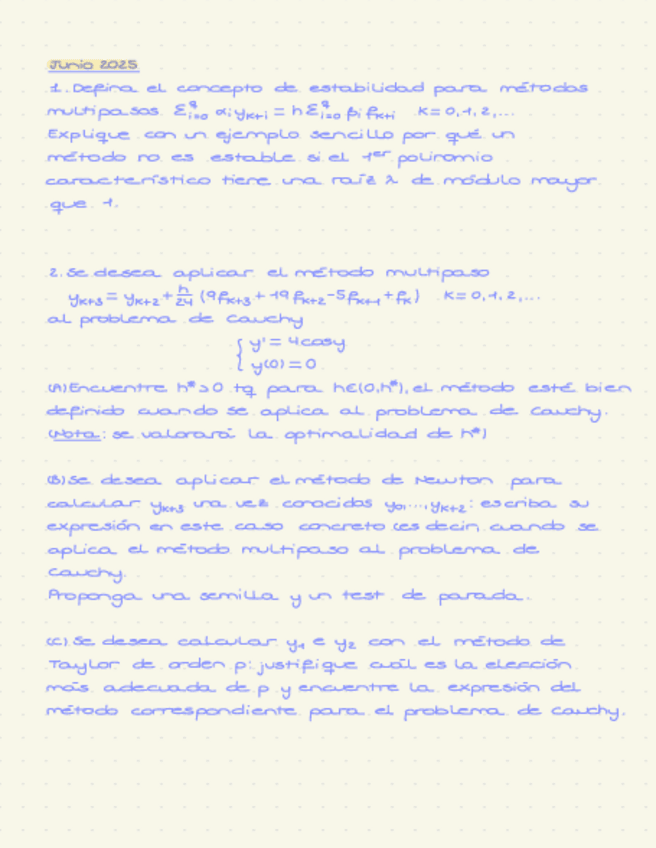 Junio 2025
1. Defina el concepto de estabilidad para métodos
multipasos Σ_{i=0}^{q} α_i y_{k+i} = h Σ_{i=0}^{q} β_i f_{k+i} k=0,1,2,...
Explique con un ejemplo sencillo por qué un
método no es estable si el 1er polinomio
característico tiene una raíz λ de módulo mayor
que 1.
2. Se desea aplicar el método multipaso
y_{k+3} = y_{k+2} + h/24 (9f_{k+3} + 19f_{k+2} - 5f_{k+1} + f_k) k=0,1,2,...
al problema de Cauchy
{ y' = 4cosy
y(0) = 0
(A) Encuentre h*>0 tq para h∈(0,h*), el método esté bien
definido cuando se aplica al problema de Cauchy.
(Nota: se valorará la optimalidad de h*)
(B) Se desea aplicar el método de Newton para
calcular y_{k+3} una vez conocidos y_0,...,y_{k+2}: escriba su
expresión en este caso concreto (es decir, cuando se
aplica el método multipaso al problema de
Cauchy.
Proponga una semilla y un test de parada.
(C) Se desea calcular y_1 e y_2 con el método de
Taylor de orden p: justifique cuál es la elección
más adecuada de p y encuentre la expresión del
método correspondiente para el problema de Cauchy.